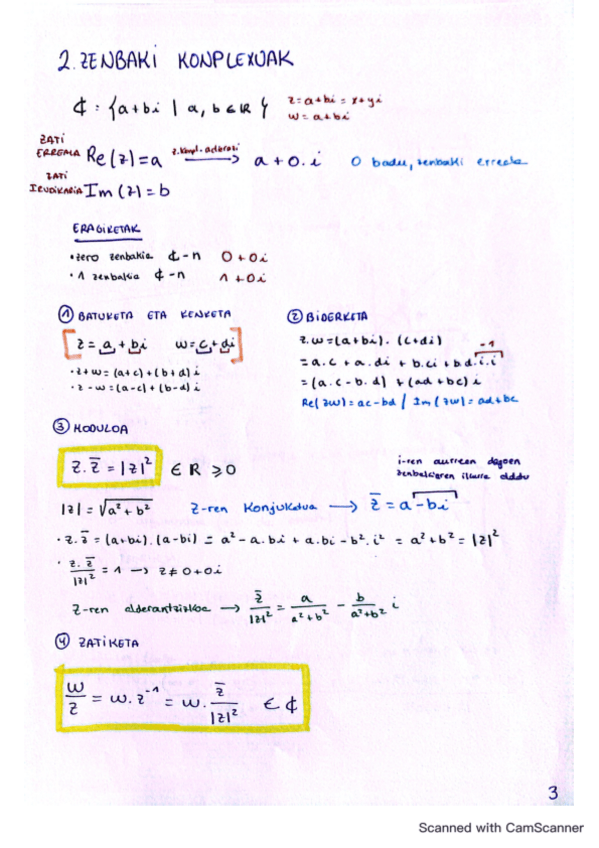 2. ZENBAKI KONPLEXUAK
₵ : {a+bi | a, b ∈ ℝ} z=a+bi = x+yi
w=a+bi
ZATI
ERREALA Re(z)=a z.konpl. adierazi → a+0.i 0 badu, zenbaki erreala
ZATI
IRUDIKARIA Im(z)=b
ERAGIKETAK
• zero zenbakia ₵-n 0+0i
• 1 zenbakia ₵-n 1+0i
① BATUKETA ETA KENKETA
[z=a+bi w=c+di]
• z+w=(a+c)+(b+d)i
• z-w=(a-c)+(b-d)i
② BIDERKETA
z.w=(a+bi).(c+di)
-1
=a.c+a.di+b.ci+bd.i.i
=(a.c-b.d)+(ad+bc)i
Re(zw)=ac-bd / Im(zw)=ad+bc
③ MODULOA
z.z̅=|z|² ∈ ℝ ≥0
i-ren aurrean dagoen
zenbakiaren ikurra aldatu
|z|=√a²+b² z-ren konjukatua → z̅=a-bi
• z.z̅=(a+bi).(a-bi)=a²-a.bi+a.bi-b².i²=a²+b²=|z|²
• z.z̅/|z|²=1 → z≠0+0i
z-ren alderantzizkoa → z̅/|z|²=a/a²+b² - b/a²+b² i
④ ZATIKETA
w/z=w.z⁻¹=w.z̅/|z|² ∈ ₵
3
Scanned with CamScanner